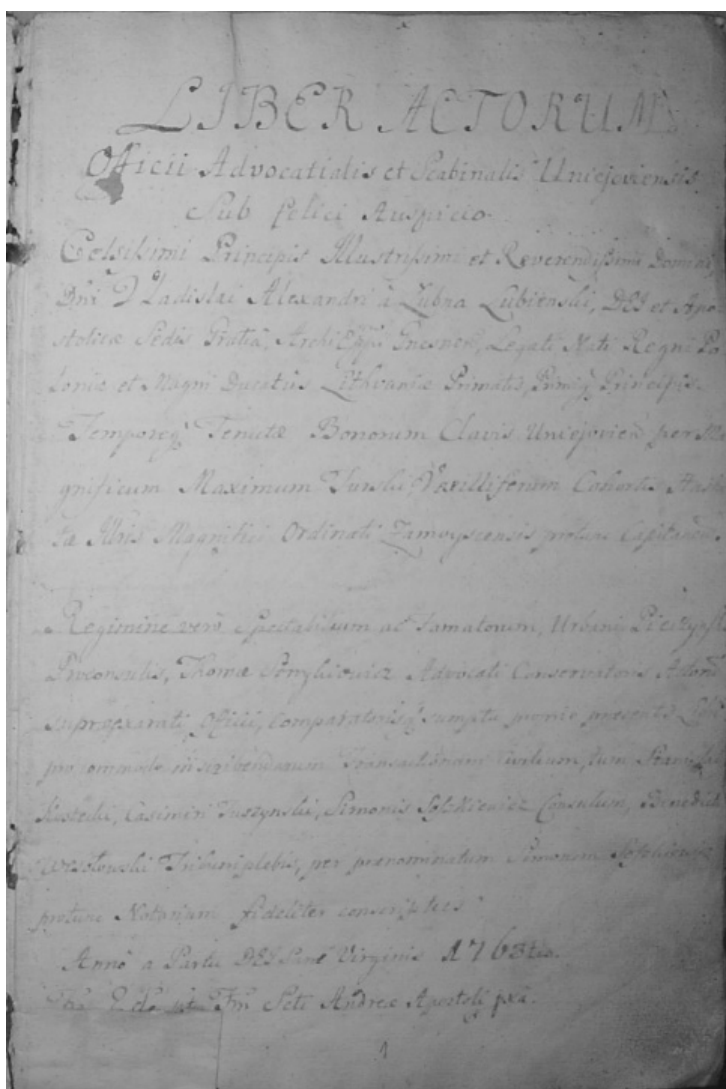 LIBER ACTORUM
Officii Advocatialis et Scabinalis Uniejoviensis
Sub felici Auspicio
Celsissimi Principis Illustrissimi et Reverendissimi Domini
Dni Vladislai Alexandri à Lubna Lubienski, DEI et Apo
stolicæ Sedis Gratia, Archi Gnesnen, Legati Nati Regni Po
loniæ et Magni Ducatus Lithvaniæ Primatis, Primiq Principis
Temporeq Tenutæ Bonorum Clavis Uniejovien per Ma
gnificum Maximum Turski, Vexilliferum Cohortis Hasta
tæ Illris Magnifici Ordinati Zamoyscensis protunc Capitaneum.
Regimine vero Spectabilium ac Famatorum, Urbani
Proconsulis, Thomæ Advocati Conservatoris Actorum
Officii, sumptu proprio presentis Libri
pro commodo inscribendarum Transactionum Civilium, tum Stanislai
Casimiri Tuszynski, Simonis Consulum, Benedicti
Wesołowski Tribuniplebis, per prænominatum Simonem
protunc Notarium fideliter conscriptus
Anno a Partu DEI Virginis 1763tio.
Andreæ Apostoli
1